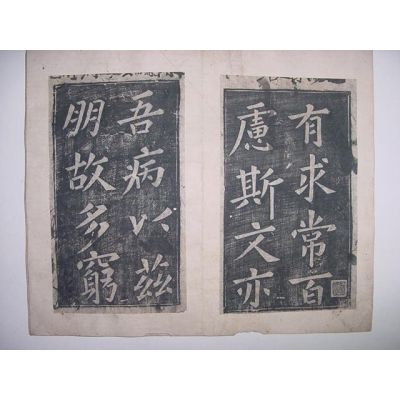 有求常百
慮斯文亦
吾病以茲
朋故多窮